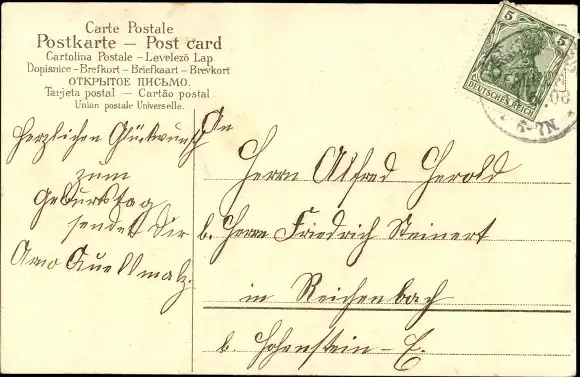 Carte Postale
Postkarte – Post card
Cartolina Postale – Levelező Lap
Dopisnice – Brefkort – Briefkaart – Brevkort
ОТКРЫТОЕ ПИСЬМО.
Tarjeta postal – Cartão postal
Union postale Universelle.
5
DEUTSCHES REICH
5-7N.
Herzlichen Glückwunsch
zum
Geburtstag
sendet Dir
Arno Quellmalz.
An
Herrn Alfred Herold
b. Herrn Friedrich Steinert
in Reichenbach
b. Hohenstein-E.